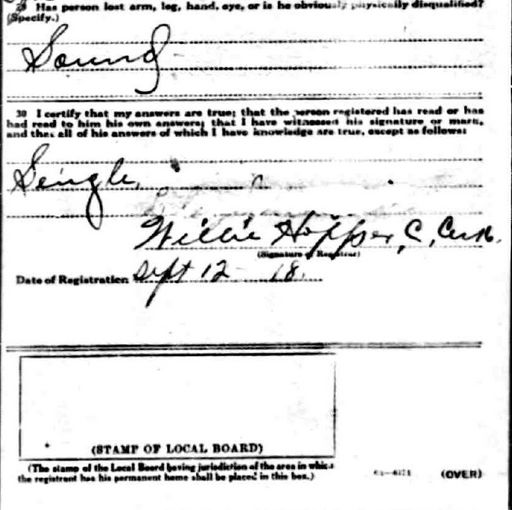 29 Has person lost arm, leg, hand, eye, or is he obviously physically disqualified?
(Specify.)
Sound
30 I certify that my answers are true; that the person registered has read or has
had read to him his own answers; that I have witnessed his signature or mark,
and that all of his answers of which I have knowledge are true, except as follows:
Single
Willie Hopper, C, Clerk.
(Signature of Registrar)
Date of Registration Sept 12 18.
(STAMP OF LOCAL BOARD)
(The stamp of the Local Board having jurisdiction of the area in which
the registrant has his permanent home shall be placed in this box.)
(OVER)